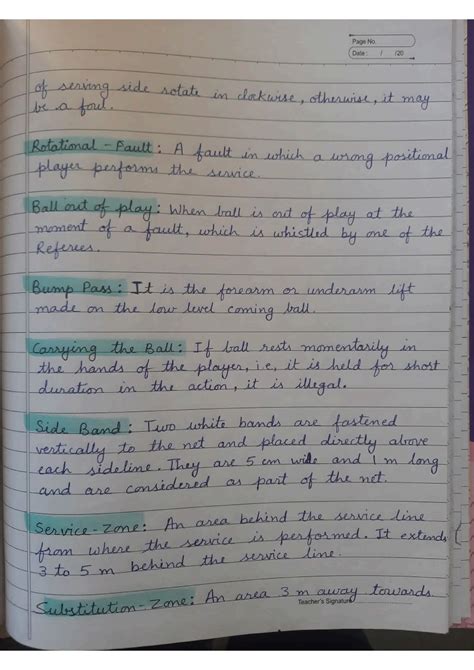 Page No.
Date : / /20
of serving side rotate in clockwise, otherwise, it may
be a foul.
Rotational - Fault : A fault in which a wrong positional
player performs the service.
Ball out of play : When ball is out of play at the
moment of a fault, which is whistled by one of the
Referees.
Bump Pass : It is the forearm or underarm lift
made on the low level coming ball.
Carrying the Ball : If ball rests momentarily in
the hands of the player, i.e, it is held for short
duration in the action, it is illegal.
Side Band : Two white bands are fastened
vertically to the net and placed directly above
each sideline. They are 5 cm wide and 1 m long
and are considered as part of the net.
Service - Zone : An area behind the service line
from where the service is performed. It extends
3 to 5 m behind the service line.
Substitution - Zone : An area 3 m away towards
Teacher's Signature